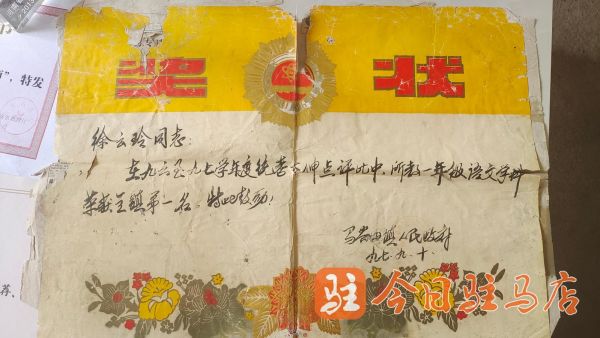 奖状
徐云玲同志：
在九六至九七学年度统考 中点评比中，所教一年级语文学科
荣获全镇第一名，特此鼓励
镇人民政府
九七.九.十.
特发
荐、
驻 今日驻马店